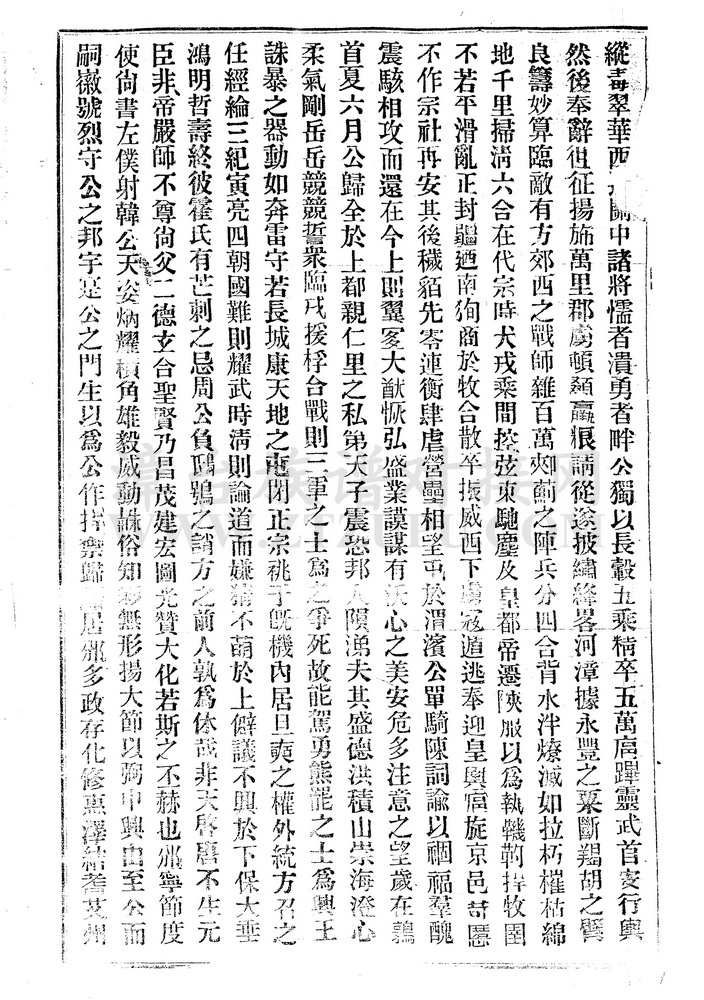 縱毒翠華西 關中諸將懦者潰勇者畔公獨以長轂五乘精卒五萬扈蹕靈武首安行輿
然後奉辭徂征揚旆萬里郡虜頓顙羸粮請從遂披繡絳畧河漳據永豐之粟斷羯胡之臂
良籌妙算臨敵有方郊西之戰師雜百萬 薊之陣兵分四合背水泮燎滅如拉朽摧枯綿
地千里掃清六合在代宗時犬戎乘間控弦東馳塵及皇都帝遷陝服以為執羈靮捍牧圉
不若平滑亂正封疆迺南狥商於牧合散卒振威西下虜寇遁逃奉迎皇輿富旋京邑苛慝
不作宗社再安其後穢貊先零連衡肆虐營壘相望屯於渭濱公單騎陳詞諭以禍福羣醜
震駭相攻而還在今上則翼宻大猷恢弘盛業謨謀有沃心之美安危多注意之望歲在鶉
首夏六月公歸全於上都親仁里之私第天子震恐邦人隕涕夫其盛德洪積山崇海澄心
柔氣剛岳岳競競誓衆臨戎援桴合戰則三軍之士為之爭死故能駕勇熊羆之士為興王
誅暴之器動如奔雷守若長城康天地之屯閉正宗祧于既機內居旦奭之權外統方召之
任經綸三紀寅亮四朝國難則耀武時清則論道而嫌猜不萌於上僻議不興於下保大垂
鴻明哲壽終彼霍氏有芒刺之忌周公負鴟鴞之誚方之前人孰為休哉非天啓聖不生元
臣非帝嚴師不尊尙父二德玄合聖賢乃昌茂建宏圖光贊大化若斯之丕赫也邠寧節度
使尙書左僕射韓公天姿炳耀積角雄毅威動 俗知 無形揚大節以狥中興由至公而
嗣徽號烈守公之邦宇是公之門生以為公作捍禦歸 居邠多政存化修惠澤結耆艾州